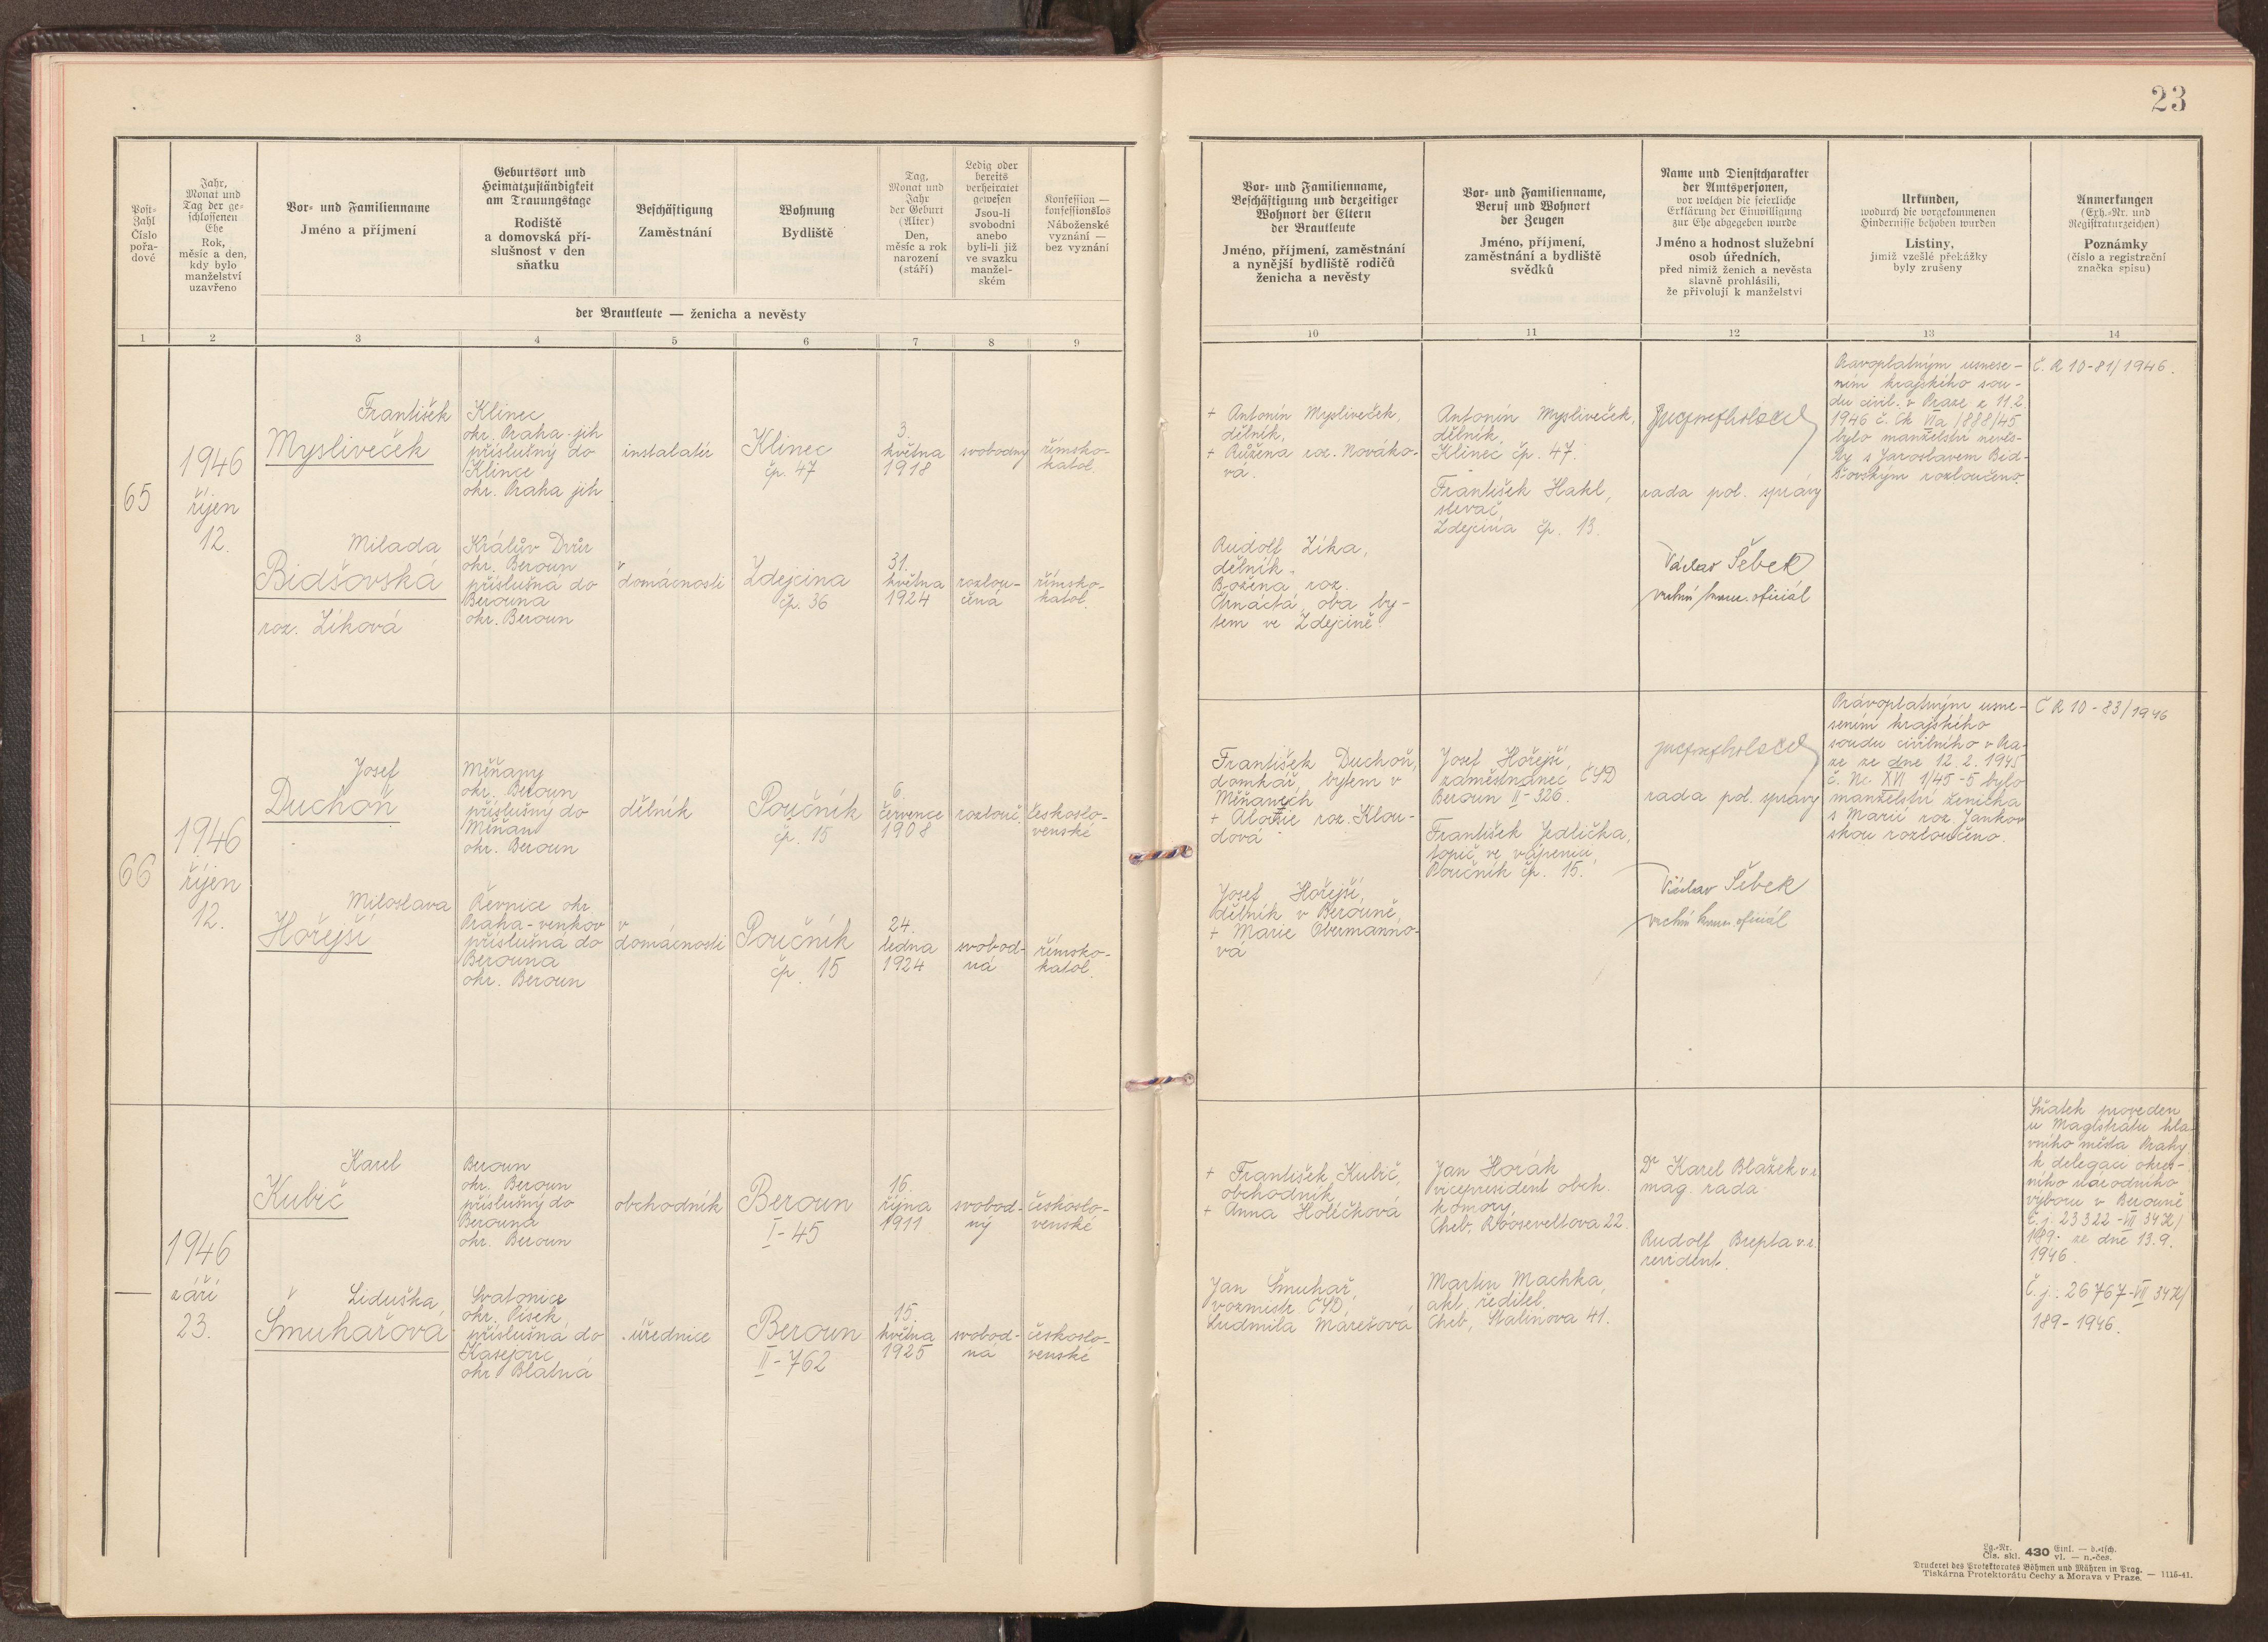 23
Post-
Zahl
Číslo
pořa-
dové
Jahr,
Monat und
Tag der ge-
schlossenen
Ehe
Rok,
měsíc a den,
kdy bylo
manželství
uzavřeno
Vor- und Familienname
Jméno a příjmení
Geburtsort und
Heimatzuständigkeit
am Trauungstage
Rodiště
a domovská pří-
slušnost v den
sňatku
Beschäftigung
Zaměstnání
Wohnung
Bydliště
Tag,
Monat und
Jahr
der Geburt
(Alter)
Den,
měsíc a rok
narození
(stáří)
Ledig oder
bereits
verheiratet
gewesen
Jsou-li
svobodni
anebo
byli-li již
ve svazku
manžel-
ském
Konfession —
konfessionslos
Náboženské
vyznání —
bez vyznání
der Brautleute — ženicha a nevěsty
Vor- und Familienname,
Beschäftigung und derzeitiger
Wohnort der Eltern
der Brautleute
Jméno, příjmení, zaměstnání
a nynější bydliště rodičů
ženicha a nevěsty
Vor- und Familienname,
Beruf und Wohnort
der Zeugen
Jméno, příjmení,
zaměstnání a bydliště
svědků
Name und Dienstcharakter
der Amtspersonen,
vor welchen die feierliche
Erklärung der Einwilligung
zur Ehe abgegeben wurde
Jméno a hodnost služební
osob úředních,
před nimiž ženich a nevěsta
slavně prohlásili,
že přivolují k manželství
Urkunden,
wodurch die vorgekommenen
Hindernisse behoben wurden
Listiny,
jimiž vzešlé překážky
byly zrušeny
Anmerkungen
(Exh.-Nr. und
Registraturzeichen)
Poznámky
(číslo a registrační
značka spisu)
1 2 3 4 5 6 7 8 9 10 11 12 13 14
65
1946
říjen
12.
František
Mysliveček
Klinec
okr. Praha-jih
příslušný do
Klince
okr. Praha jih
instalatér
Klinec
čp. 47
3.
května
1918
svobodný
římsko-
katol.
Milada
Bidšovská
roz. Zíková
Králův Dvůr
okr. Beroun
příslušná do
Berouna
okr. Beroun
v
domácnosti
Zdejcina
čp. 36
31.
května
1924
rozlou-
čená
římsko-
katol.
+ Antonín Mysliveček,
dělník,
+ Růžena roz. Nováko-
vá.
Rudolf Zíka,
dělník.
Božena roz.
oba by-
tem ve Zdejcině.
Antonín Mysliveček,
dělník,
Klinec čp. 47.
František Hakl,
slevač,
Zdejcina čp. 13.
rada pol. správy
Václav Šebek
vrchní kanc. oficiál
Pravoplatným usnese-
ním krajského sou-
du civil. v Praze z 11.2.
1946 č. Ck VIIa 1888/45
bylo manželství nevěs-
ty s Jaroslavem Bid-
šovským rozloučeno.
Č. R 10-81/1946.
66
1946
říjen
12.
Josef
Duchoň
Měňany
okr. Beroun
příslušný do
Měňan
okr. Beroun
dělník
Poučník
čp. 15
6.
července
1908
rozlouč.
českoslo-
venské
Miloslava
Hořejší
Řevnice okr.
Praha-venkov
příslušná do
Berouna
okr. Beroun
v
domácnosti
Poučník
čp. 15
24.
ledna
1924
svobod-
ná
římsko-
katol.
František Duchoň,
domkář, bytem v
Měňanech
+ Aloisie roz. Klou-
dová
Josef Hořejší,
dělník v Berouně,
+ Marie Obermanno-
vá
Josef Hořejší,
zaměstnanec ČSD
Beroun II-326.
František Jedlička,
topič ve vápenici,
Poučník čp. 15.
rada pol. správy
Václav Šebek
vrchní kanc. oficiál
Právoplatným usne-
sením krajského
soudu civilního v Pra-
ze ze dne 12.2.1945
č. Nc XVI 1/45-5 bylo
manželství ženicha
s Marií roz. Jankov
skou rozloučeno.
Č R 10-83/1946
—
1946
září
23.
Karel
Kubič
Beroun
okr. Beroun
příslušný do
Berouna
okr. Beroun
obchodník
Beroun
I-45
16.
října
1911
svobod-
ný
českoslo-
venské
Liduška
Šmuhařová
Svatonice
okr. Písek,
příslušná do
Kasejovic
okr. Blatná
úřednice
Beroun
II-762
15.
května
1925
svobod-
ná
českoslo-
venské
+ František Kubič,
obchodník
+ Anna Holečková
Jan Šmuhař,
vozmistr ČSD,
Ludmila Marešová
Jan Horák
vicepresident obch.
komory,
Cheb, Rooseveltova 22.
Martin Machka,
akt. ředitel,
Cheb, Stalinova 41.
Dr Karel Blažek v.r.
mag. rada.
Rudolf Brepta v.r.
revident.
Sňatek proveden
u Magistrátu hla-
vního města Prahy
k delegaci okres-
ního národního
výboru v Berouně
č.j. 23322-VII 34K/
189- ze dne 13.9.
1946.
Č.j. 26767-VII 34K/
189-1946.
Lg.-Nr. 430 Einl. — d.-tsch.
Čís. skl. vl. — n.-čes.
Druckerei des Protektorates Böhmen und Mähren in Prag.
Tiskárna Protektorátu Čechy a Morava v Praze. — 1115-41.